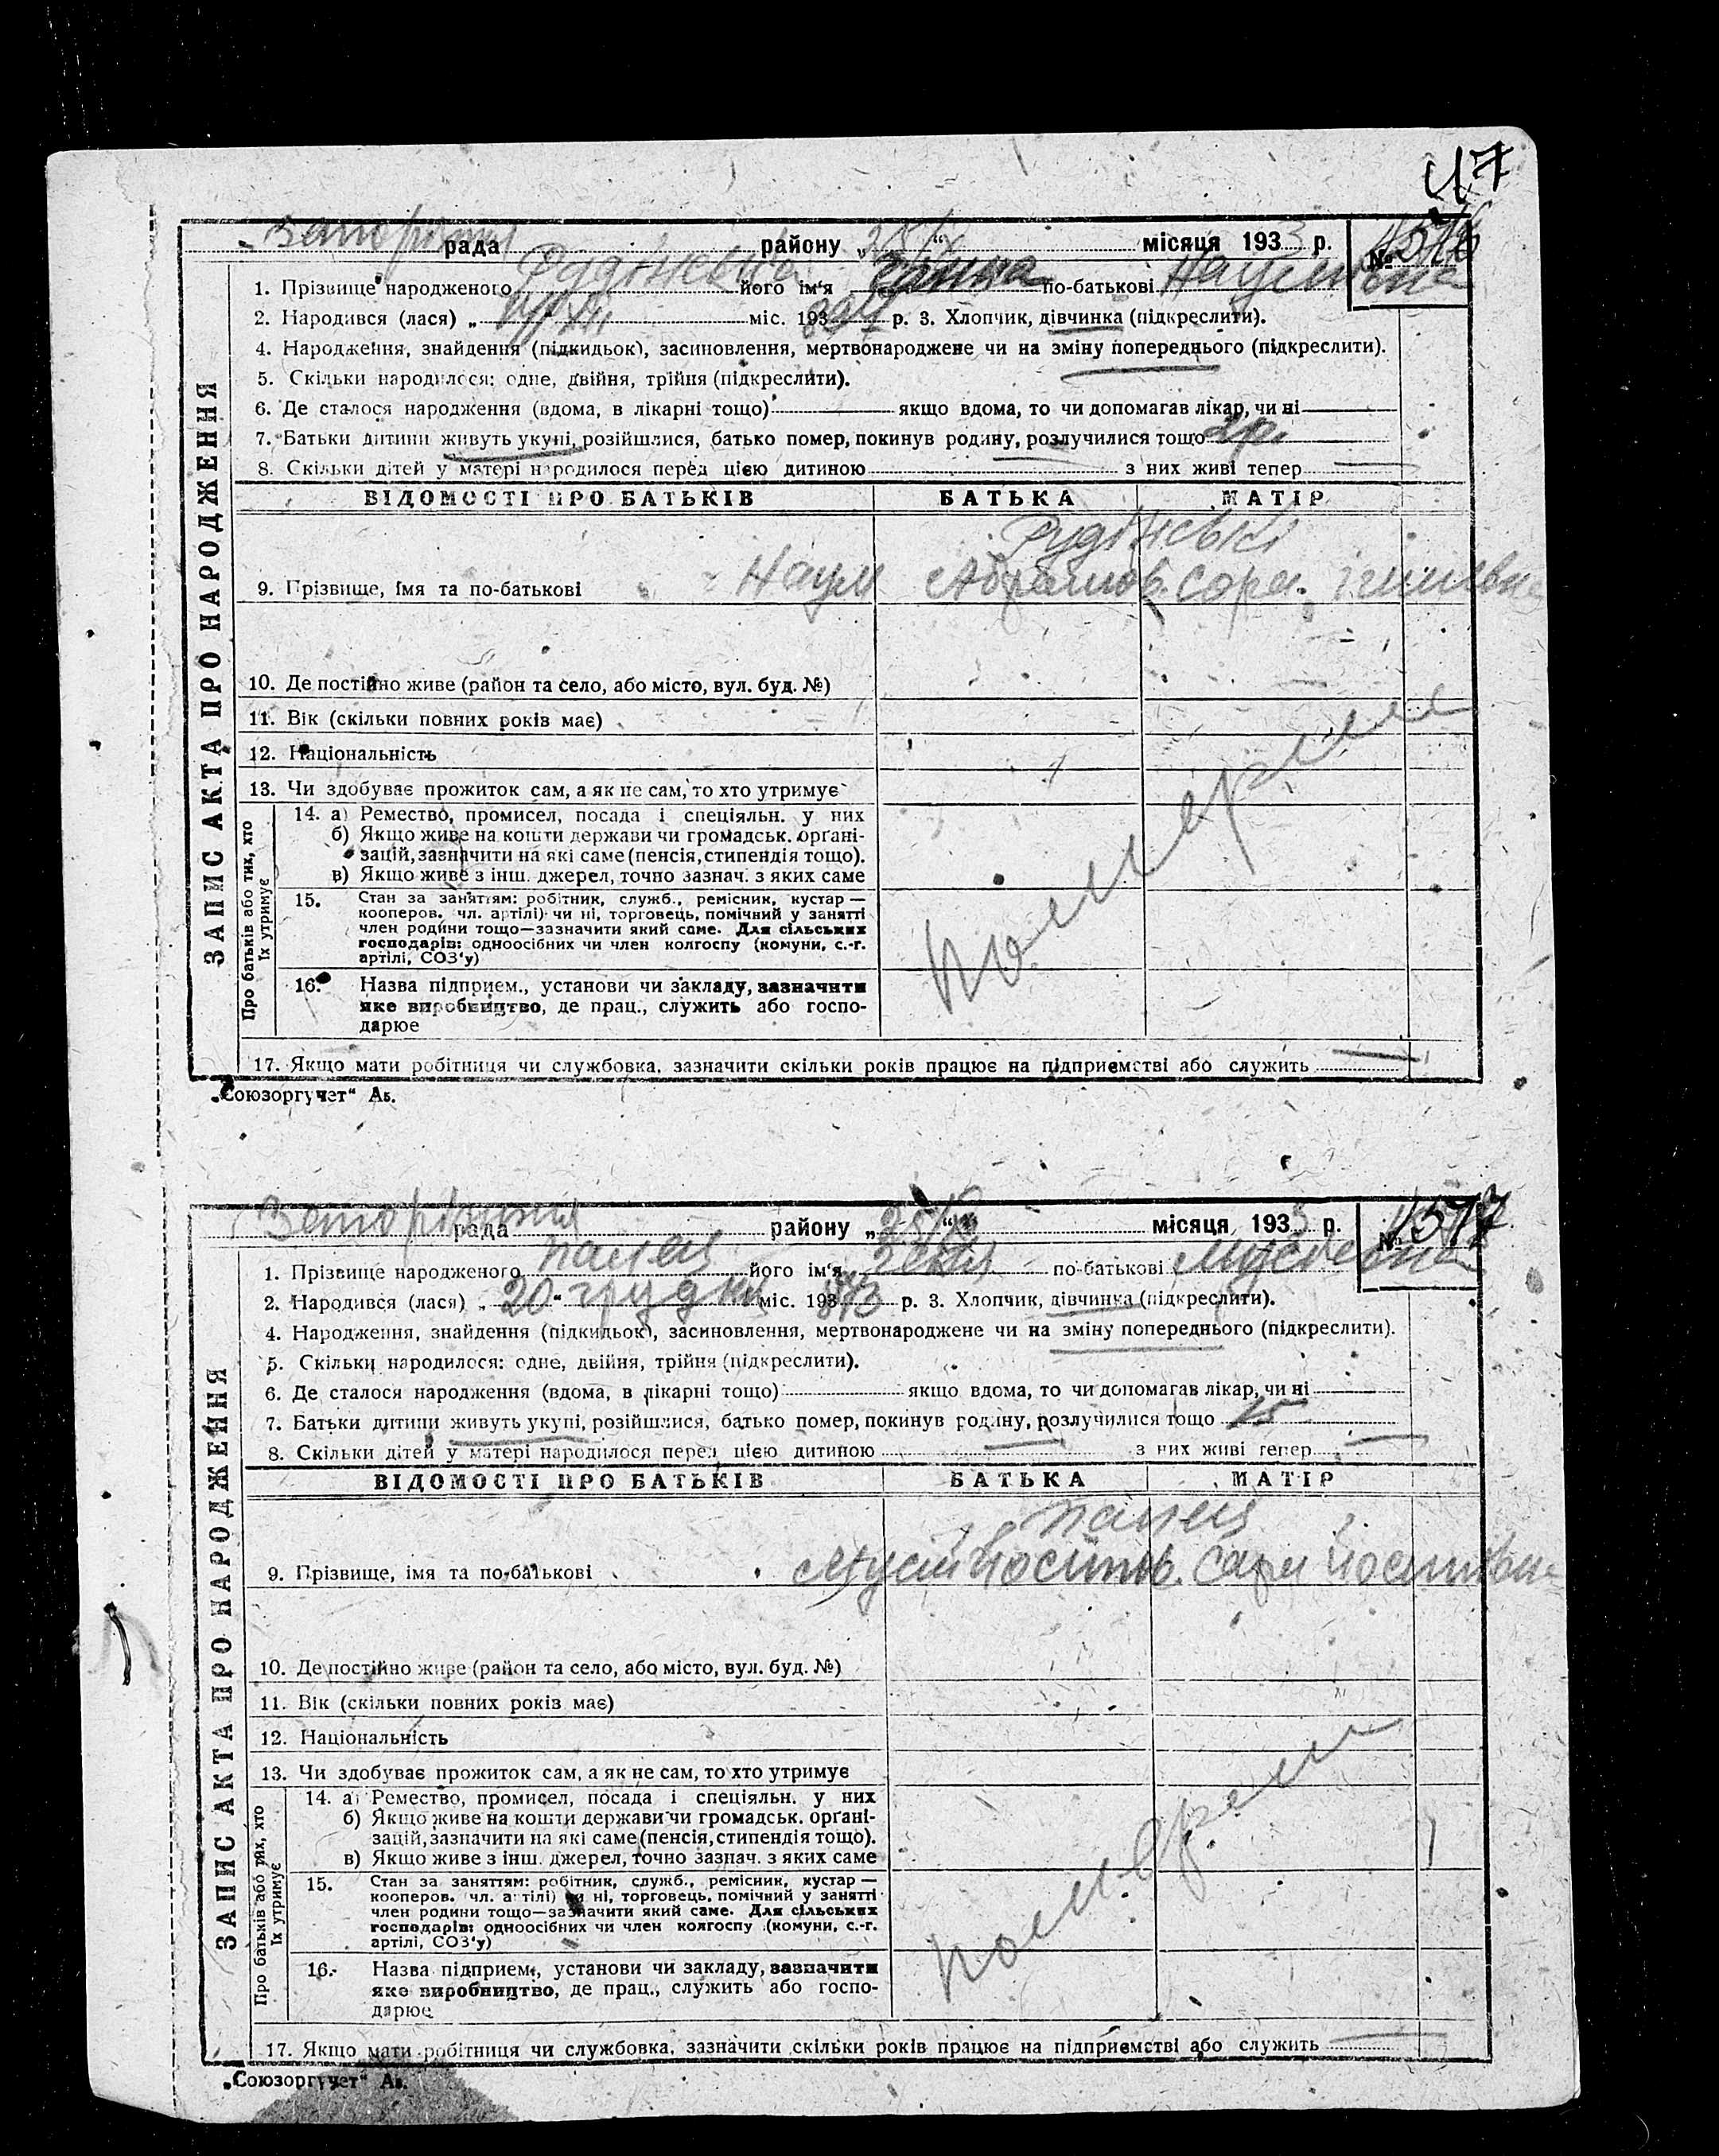 47
рада району „ 25/X “ місяця 1933 р. № 4576
1. Прізвище народженого Рудінська його ім'я по-батькові Наумовна
2. Народився (лася) „ міс. 193 р. 3. Хлопчик, дівчинка (підкреслити).
4. Народження, знайдення (підкидьок), засиновлення, мертвонароджене чи на зміну попереднього (підкреслити).
5. Скільки народилося: одне, двійня, трійня (підкреслити).
6. Де сталося народження (вдома, в лікарні тощо) якщо вдома, то чи допомагав лікар, чи ні
7. Батьки дитини живуть укупі, розійшлися, батько помер, покинув родину, розлучилися тощо
8. Скільки дітей у матері народилося перед цією дитиною з них живі тепер
ЗАПИС АКТА ПРО НАРОДЖЕННЯ
ВІДОМОСТІ ПРО БАТЬКІВ БАТЬКА МАТІР
Рудінські
9. Прізвище, імя та по-батькові Наум Абрамов. Сора
10. Де постійно живе (район та село, або місто, вул. буд. №)
11. Вік (скільки повних років має)
12. Національність
13. Чи здобуває прожиток сам, а як не сам, то хто утримує
Про батьків або тих, хто їх утримує
14. а) Ремество, промисел, посада і спеціяльн. у них
б) Якщо живе на кошти держави чи громадськ. орґані-
зацій, зазначити на які саме (пенсія, стипендія тощо).
в) Якщо живе з інш. джерел, точно зазнач. з яких саме
15. Стан за заняттям: робітник, служб., ремісник, кустар —
кооперов. чл. артілі) чи ні, торговець, помічний у занятті
член родини тощо—зазначити який саме. Для сільських
господарів: одноосібних чи член колгоспу (комуни, с.-г.
артілі, СОЗ'у)
16. Назва підприєм., установи чи закладу, зазначити
яке виробництво, де прац., служить або госпо-
дарює
померли
17. Якщо мати робітниця чи службовка, зазначити скільки років працює на підприємстві або служить
„Союзоргучет“ Ак.
рада району „ 25/X “ місяця 1933 р. № 4577
1. Прізвище народженого Палец його ім'я по-батькові Мусієвна
2. Народився (лася) „ 20 “ грудня міс. 193 р. 3. Хлопчик, дівчинка (підкреслити).
4. Народження, знайдення (підкидьок), засиновлення, мертвонароджене чи на зміну попереднього (підкреслити).
5. Скільки народилося: одне, двійня, трійня (підкреслити).
6. Де сталося народження (вдома, в лікарні тощо) якщо вдома, то чи допомагав лікар, чи ні
7. Батьки дитини живуть укупі, розійшлися, батько помер, покинув родину, розлучилися тощо
8. Скільки дітей у матері народилося перед цією дитиною з них живі тепер
ЗАПИС АКТА ПРО НАРОДЖЕННЯ
ВІДОМОСТІ ПРО БАТЬКІВ БАТЬКА МАТІР
Палец
9. Прізвище, імя та по-батькові Мусій Йосипов. Сари Йосиповна
10. Де постійно живе (район та село, або місто, вул. буд. №)
11. Вік (скільки повних років має)
12. Національність
13. Чи здобуває прожиток сам, а як не сам, то хто утримує
Про батьків або тих, хто їх утримує
14. а) Ремество, промисел, посада і спеціяльн. у них
б) Якщо живе на кошти держави чи громадськ. орґані-
зацій, зазначити на які саме (пенсія, стипендія тощо).
в) Якщо живе з інш. джерел, точно зазнач. з яких саме
15. Стан за заняттям: робітник, служб., ремісник, кустар —
кооперов. чл. артілі) чи ні, торговець, помічний у занятті
член родини тощо—зазначити який саме. Для сільських
господарів: одноосібних чи член колгоспу (комуни, с.-г.
артілі, СОЗ'у)
16. Назва підприєм., установи чи закладу, зазначити
яке виробництво, де прац., служить або госпо-
дарює
померли
17. Якщо мати робітниця чи службовка, зазначити скільки років працює на підприємстві або служить
„Союзоргучет“ Ак.